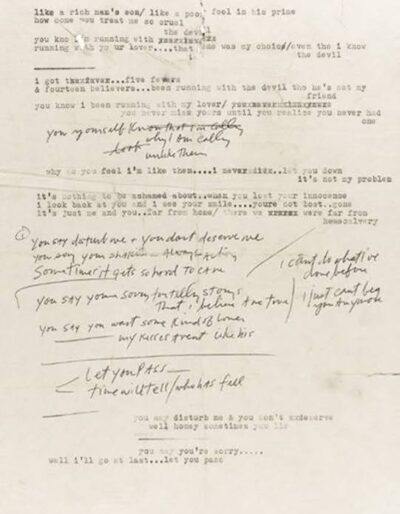 like a rich man's son/ like a poor fool in his prime
how come you treat me so cruel
the devil
you kno i'm running with
running with yo ur lover....that one was my choice/even tho i know
the devil
i got ...five fevers
& fourteen believers...been running with the devil tho he's not my
friend
you know i been running with my lover/
you never miss yours until you realize you never had
one
you yourself know that i'm calling
Look why I am calling
unlike them
why do you feel i'm like them....i never let you down
it's not my problem
it's nothing to be ashamed about..when you lost your innocence
i look back at you and i see your smile....youre not lost..gone
it's just me and you..far from home/ there we were far from
You say disturb me + you dont deserve me
you say your Always
Sometimes it gets so hard to care
i cant do what i've
done before
i just cant beg
you anymore
You say your sorry for telling storys
that i believe are true
you say you want some kind of lover
my kisses arent like his
Let you PASS
time will tell/who has fell
you may disturb me & you don't deserve
well honey sometimes you lie
you say you're sorry.....
well i'll go at last...let you pass